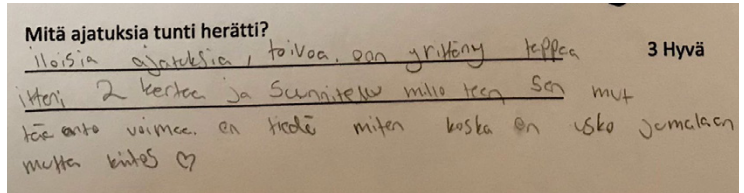 Mitä ajatuksia tunti herätti?
iloisia ajatuksia, toivoa. oon yrittäny tappaa 3 Hyvä
itteni 2 kertaa ja Suunnitellu millo teen Sen mut
tää anto voimaa. en tiedä miten koska en usko jumalaan
mutta kiitos ♡